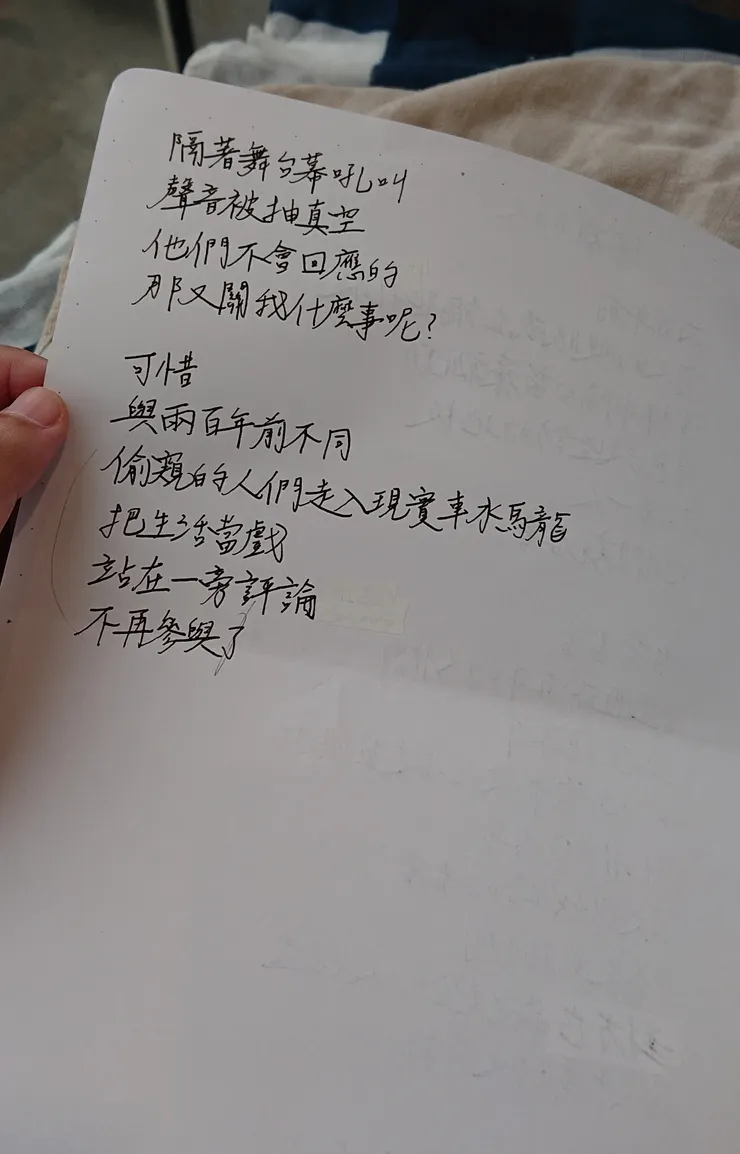 隔著舞台幕吼叫
聲音被抽真空
他們不會回應的
那又關我什麼事呢?
可惜
與兩百年前不同
偷窺的人們走入現實車水馬龍
把生活當戲
站在一旁評論
不再參與了